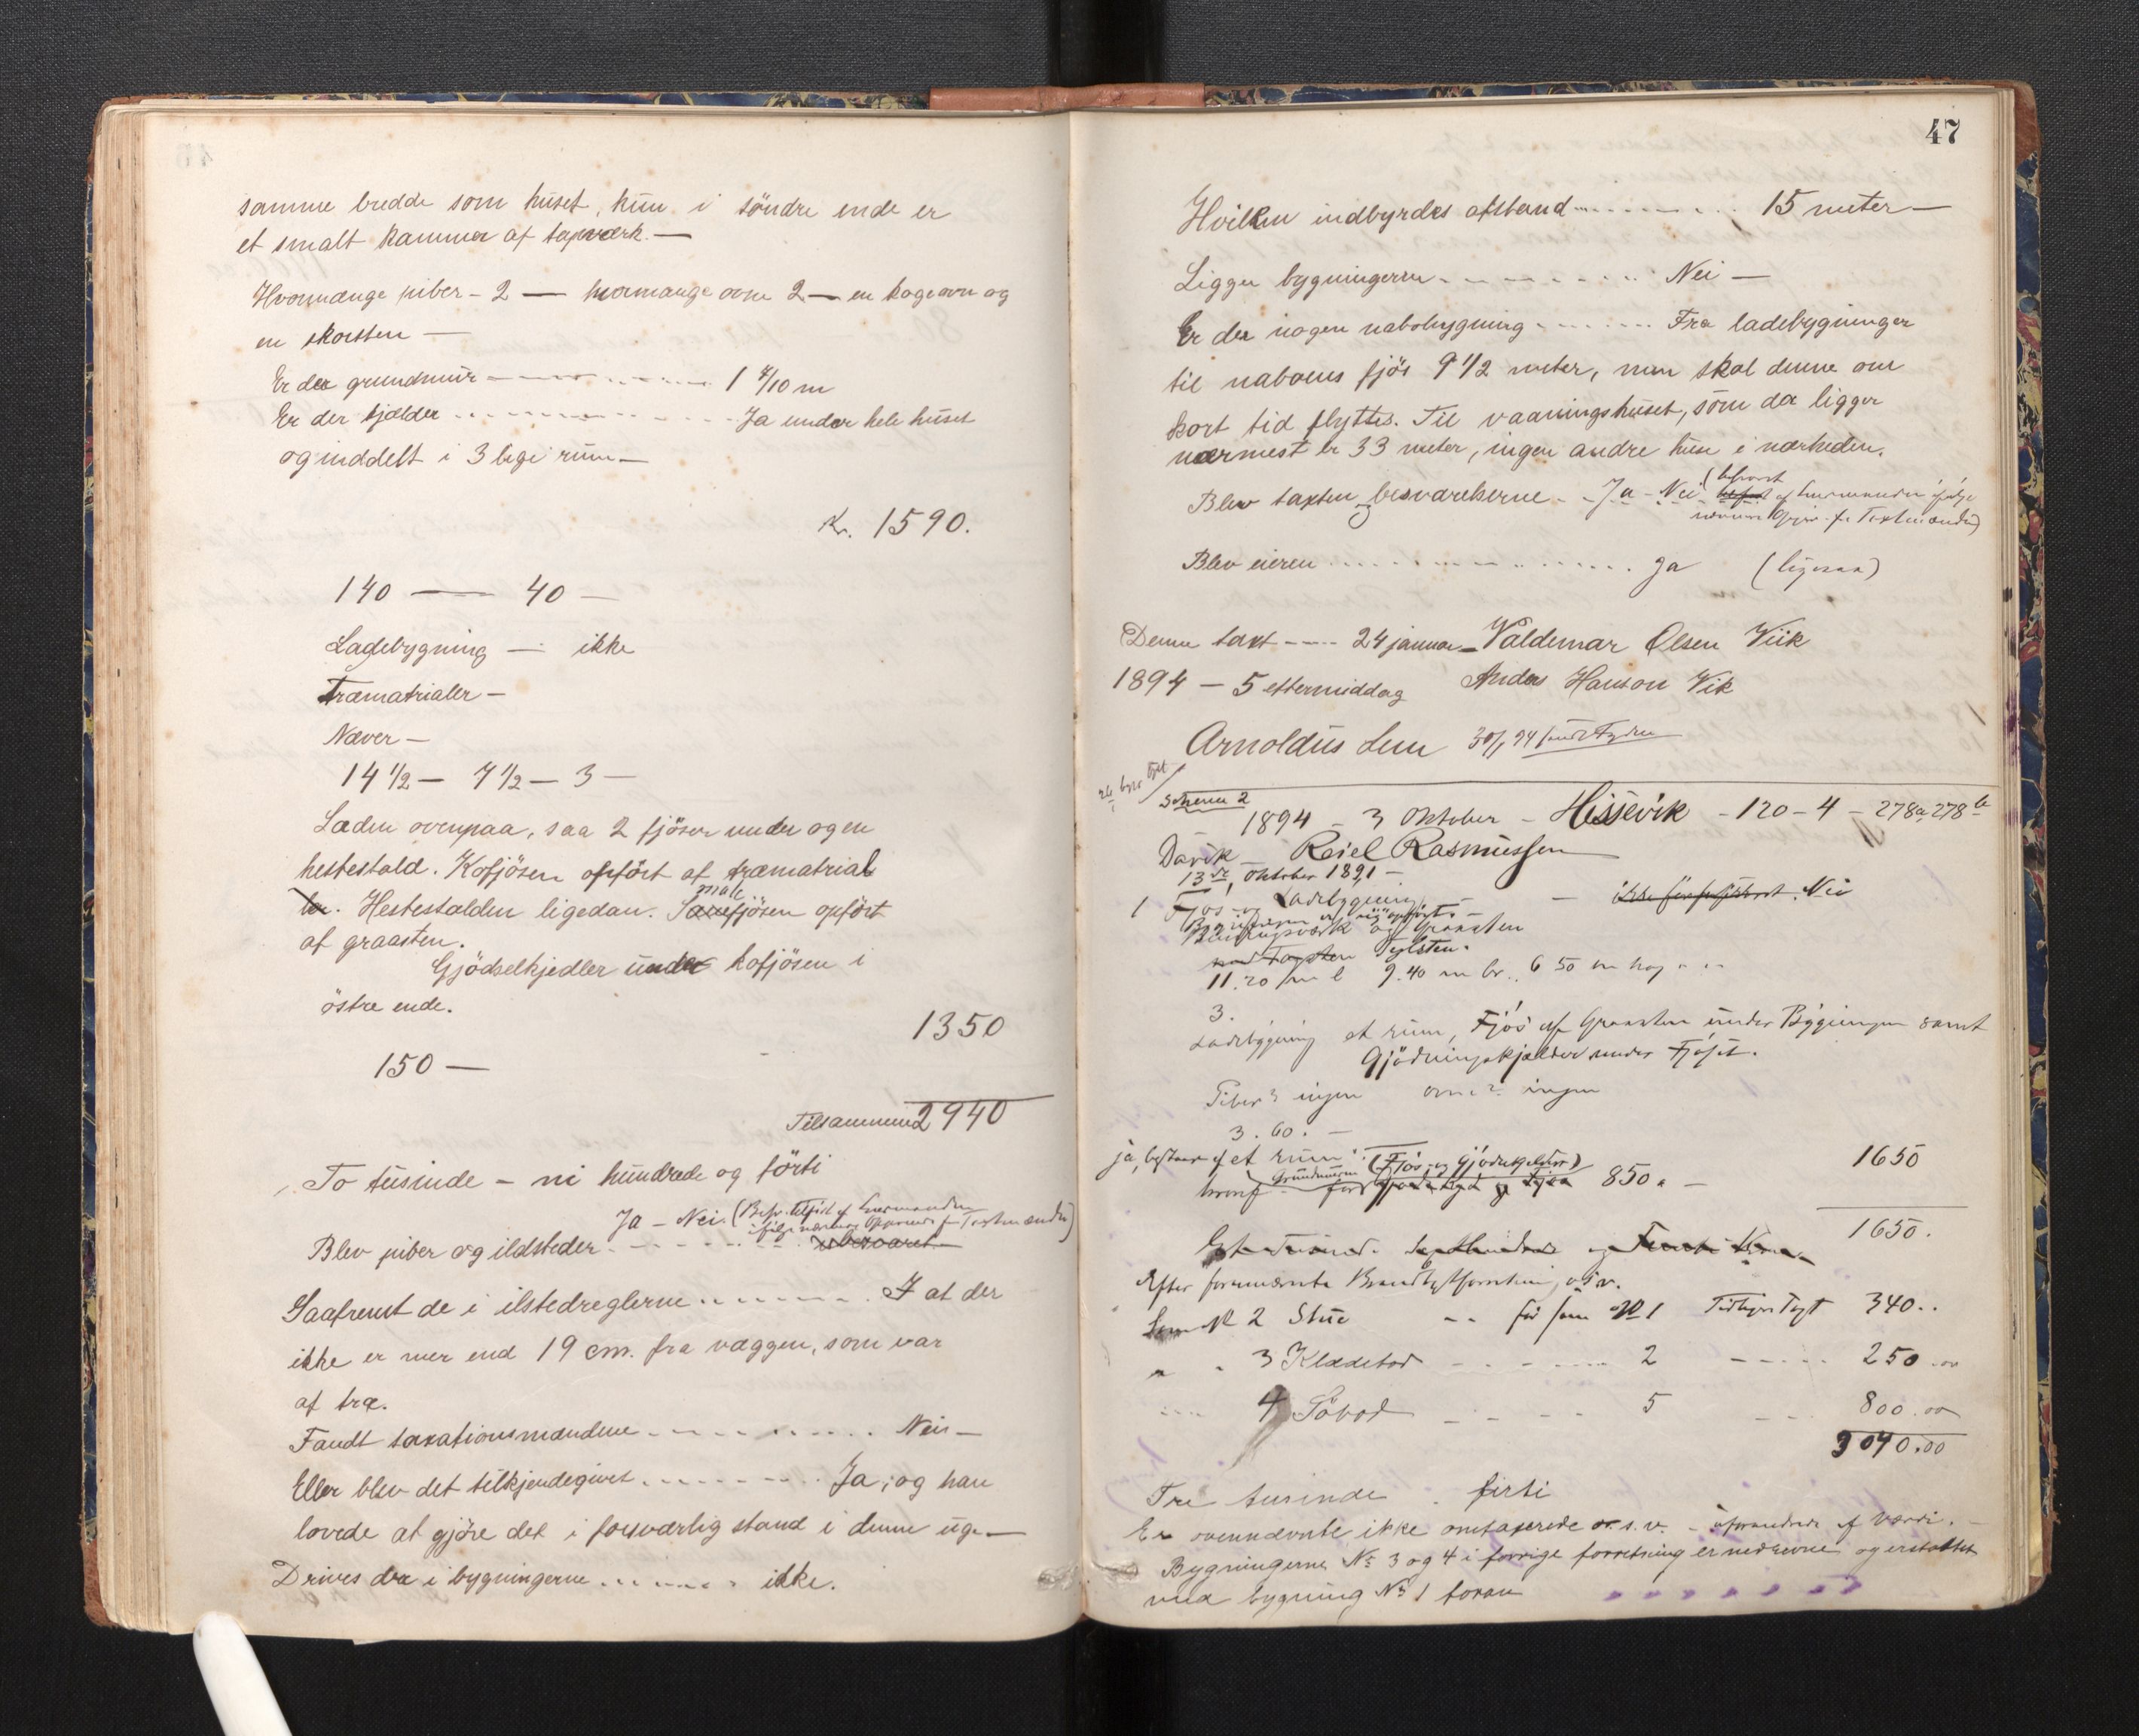 samme bredde som huset, kun i söndre ende er
et smalt kammer af tapværk. —
Hvormange piber - 2 — hvormange ovne 2 — en kogeovn og
en skorsten —
Er der grundmur — 1 4/10 m
Er der kjælder . . . . Ja under hele huset
og inddelt i 3 lige rum —
Kr. 1590.
140 — 40 —
Ladebygning — ikke
Træmatrialer —
Næver —
14 1/2 — 7 1/2 — 3 —
Laden ovenpaa, saa 2 fjöser under og en
hestestald. Kofjösen opfört af træmatrial
Hestestalden ligedan. Smalefjösen opfört
af graasten.
Gjödselkjedler under kofjösen i
östre ende.
1350
150 —
Tilsammen 2940
To tusinde - ni hundrede og förti
Ja - Nei. (Besv. tilföiet af Lensmanden
ifölge nærmere Opgivende fra Taxtmændne)
Blev piber og ildsteder . . . . ubesvaret
Saafremt de i ilstedreglerne . . . . . . I at der
ikke er mer end 19 cm. fra væggen, som var
af træ.
Fandt taxationsmændene . . . . . . . Nei —
Eller blev det tilkjendegivet . . . . . . . Ja; og han
lovede at gjöre det i forsvarlig stand i denne uge —
Drives der i bygningerne . . . . . . ikke.
47
Hvilken indbyrdes afstand . . . . . . 15 meter —
Ligger bygningerne . . . . . . Nei —
Er der nogen nabobygning . . . . . . Fra ladebygninger
til naboens fjös 9 1/2 meter, men skal denne om
kort tid flyttes. Til vaaningshuset, som der ligger
nærmest er 33 meter, ingen andre huse i nærheden.
Blev taxten og besvarelserne - Ja - Nei (besvart
af Lensmanden ifölge
nærmere Opgiv. fra Taxtmændne)
Blev eieren . . . . . . . Ja (ligesaa)
Denne taxt ---- 24 januar - Valdemar Olsen Viik
1894 — 5 ettermiddag Anders Hanson Vik
Arnoldus Lem 30/1 94
Schema 2
1894 - 3 Oktober - Hissevik - 120 - 4 - 278a, 278b
Davik Reiel Rasmussen
13de Oktober 1891 —
1 Fjös og Ladebygning — Nei
Bygningen er nyopfört. —
Bindingsværk og Graasten
Teglsten.
11.20 m l 9.40 m br., 6 50 m höi
3.
Ladebygning et rum, Fjös af Graasten under Bygningen samt
Gjödningskjælder under Fjöset.
Piber? ingen ovne? ingen
3. 60. —
ja, bestaar af et rum (Fjös og Gjödselkjelder) 1650
hvoraf Grundmuren 850 —
1650.
Efter fornævnte o.s.v.
Som No 2 Stue - - för som No 1 340..
" " 3 Klædebod - - - - 2 - - - 250.00
4 Söbod - - - - 5 - - 800.00
3040.00
Tre tusinde . firti
Er ovennævnte ikke omtaxerede o.s.v. - uforandrede af Værdi. -
Bygningerne No 3 og 4 i forrige forretning er nedrevne og erstattet
ved bygning No 1 foran